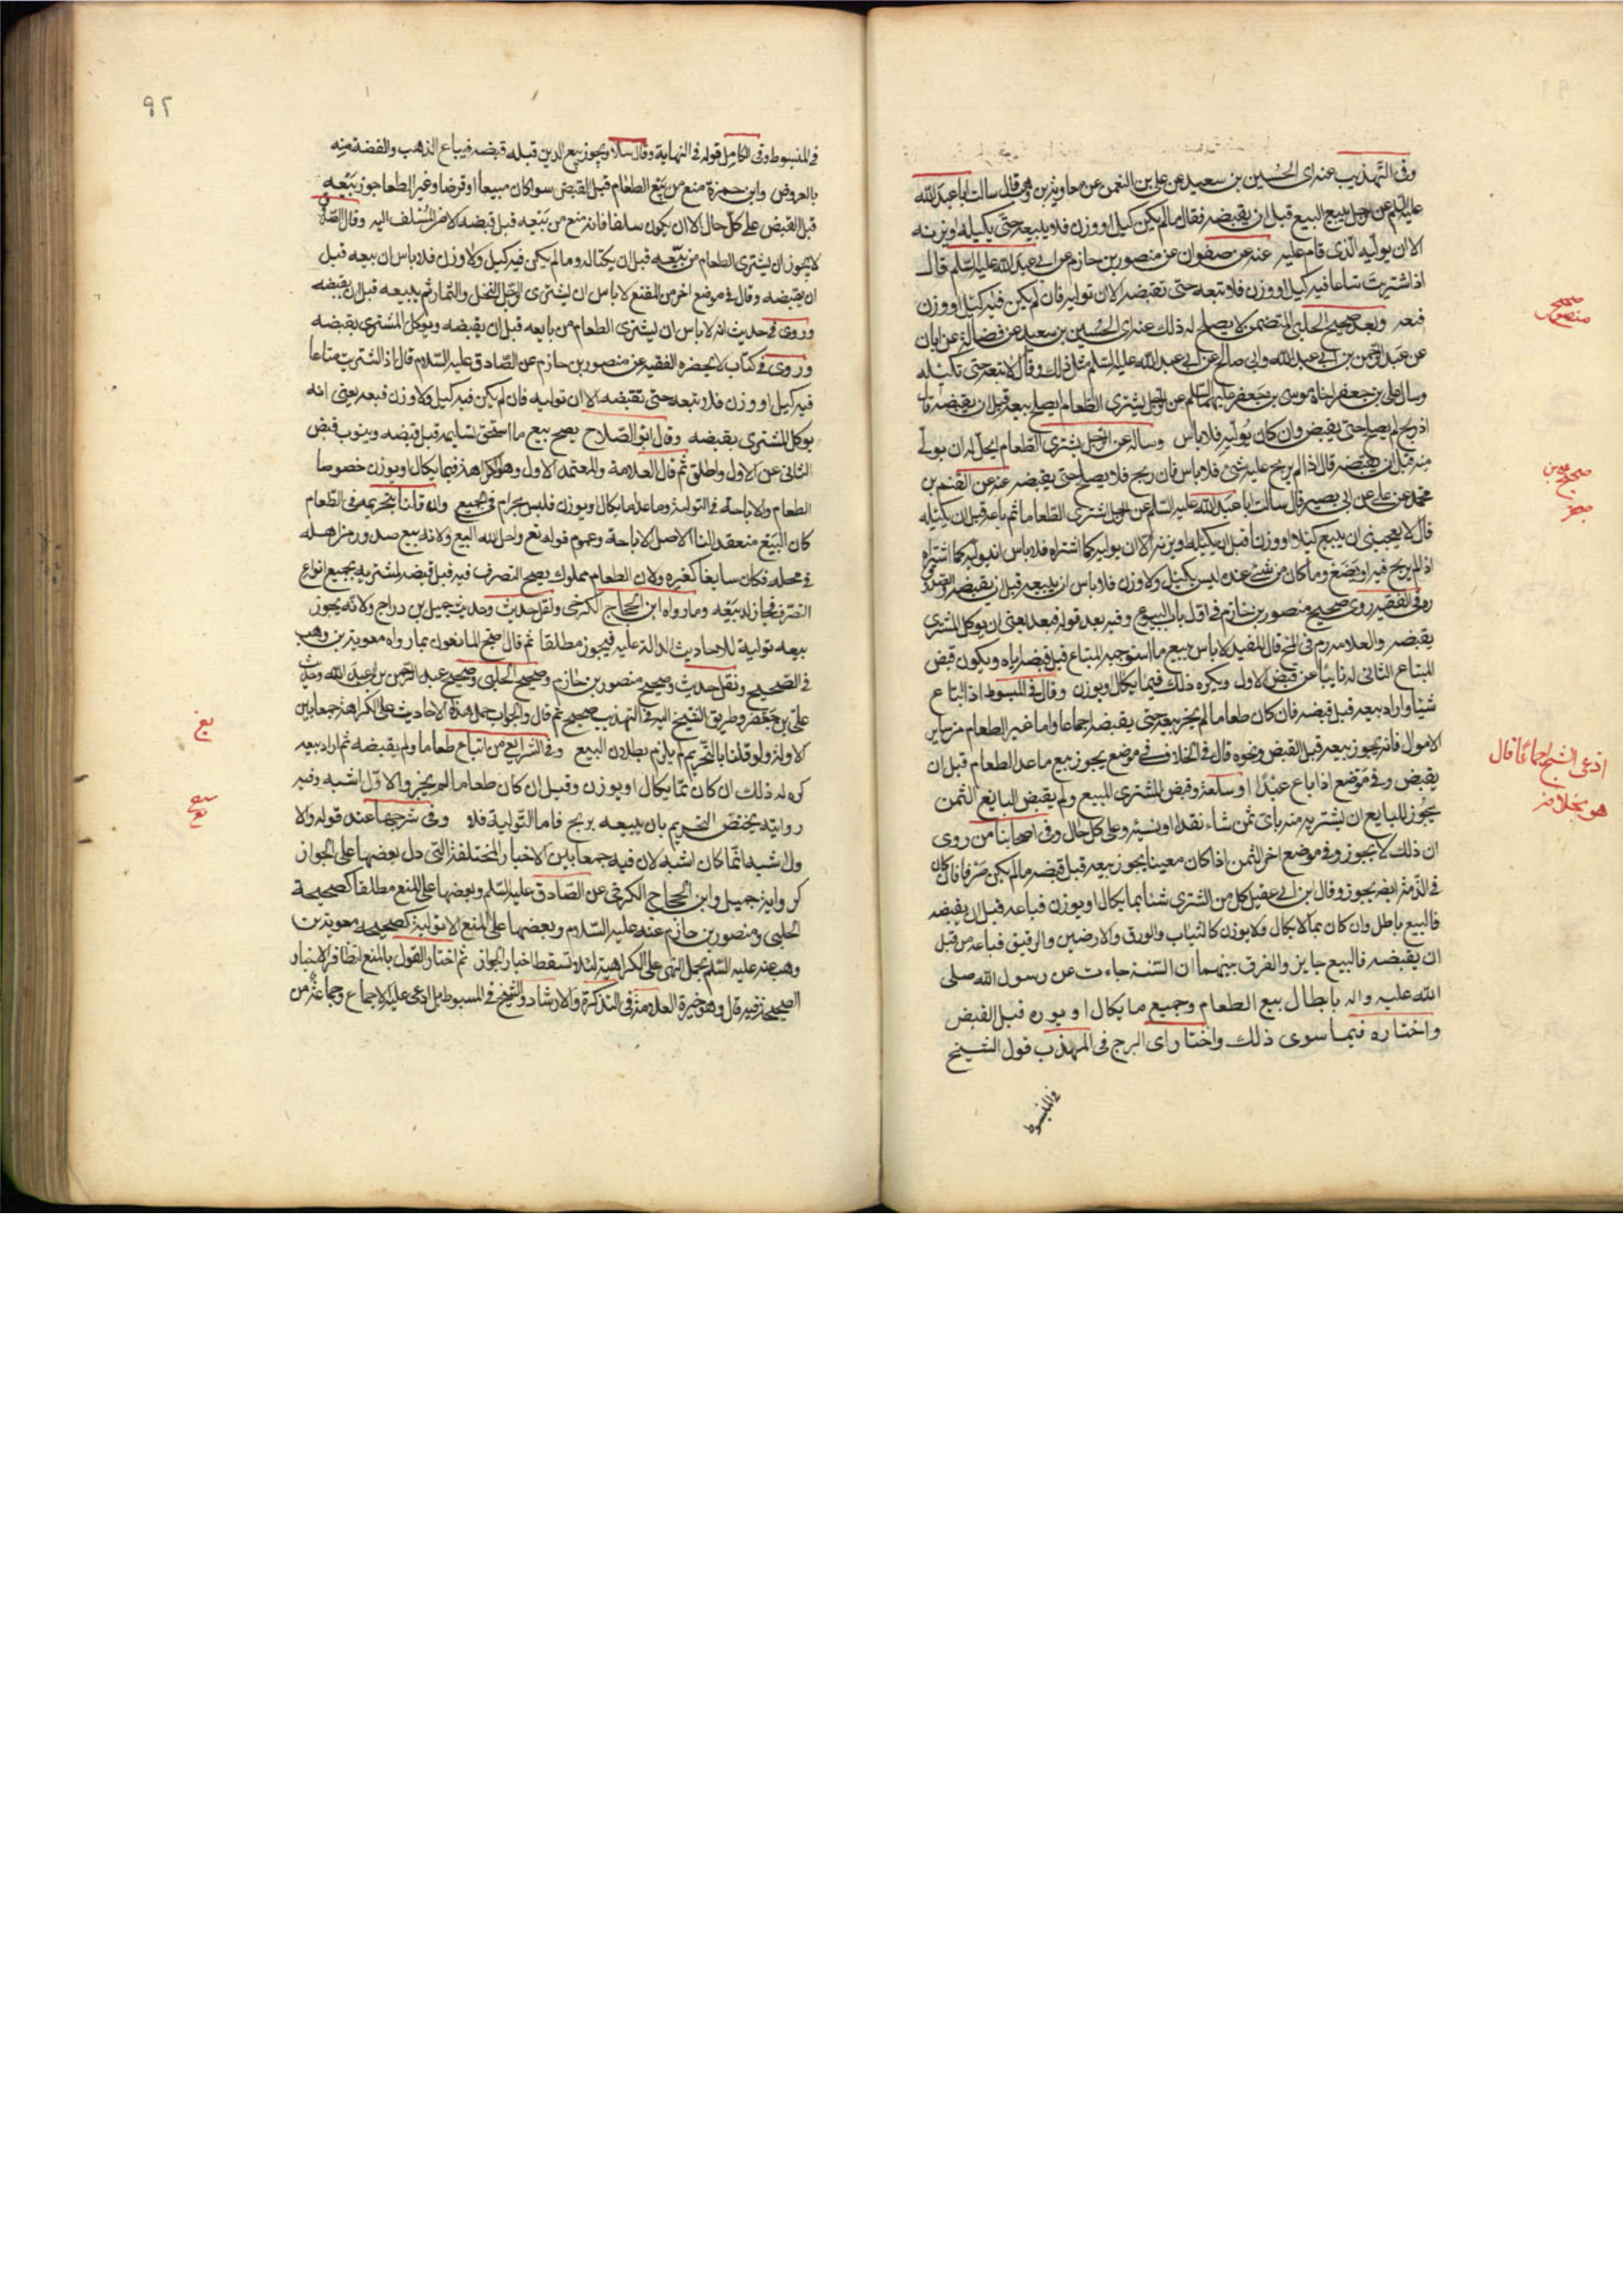 وفي التهذيب عنه اى الحُسين بن سعيد عن على بن النعمن عن معاوية بن وهب قال سالت ابا عبد الله
عليه السلم عن الرجل يبيع البيع قبل ان يقبضه فقال مالم يكن كيل او وزن فلا يبيعه حتى يكيله او يزنه
الا ان يوليه الذى قام عليه عنه عن صفوان عن منصور بن حازم عن ابى عبد الله عليه السلم قال
اذا اشتريت متاعا فيه كيل او وزن فلا تبعه حتى تقبضه الا ان توليه فان لم يكن فيه كيل او وزن
فبعه وبعد صحيح الحلبى المتضمن لا يصلح له ذلك عنه اى الحُسين بن سعيد عن فضالة عن ابان
عن عبد الرحمن بن ابى عبد الله وابى صالح عن ابى عبد الله عليه السلم مثل ذلك وقال لا تبعه حتى تكيله
وسال على بن جعفر اخاه موسى بن جعفر عليهما السلم عن الرجل يشترى الطعام ايصلح بيعه قبل ان يقبضه قال
اذا ربح لم يصلح حتى يقبض وان كان يوليه فلا باس وساله عن الرجل يشترى الطعام ايحل له ان يولى
منه قبل ان يقبضه قال اذا لم يربح عليه شئ فلا باس فان ربح فلا يصلح حتى يقبضه عنه عن القسم بن
محمد عن على عن ابى بصير قال سالت ابا عبد الله عليه السلم عن رجل اشترى الطعاما ثم باعه قبل ان يكيله
قال لا يعجبنى ان يبيع كيلا او وزنا قبل ان يكيله او يزنه الا ان يوليه كما اشتراه فلا باس ان يوليه كما اشتراه
اذا لم يربح فيه او يضع وما كان من شئ عنده ليس بكيل ولا وزن فلا باس ان يبيعه قبل ان يقبضه
في الفقيه روى صحيح منصور بن حازم في اول باب البيوع وفيه بعد قوله فبعه يعنى ان يوكل المشترى
يقبضه والعلامة ره في المخ قال المفيد لا باس ببيع ما استوجبه المبتاع قبل قبضه اياه ويكون قبض
المبتاع الثانى له نايبا عن قبض الاول ويكره ذلك فيما يكال ويوزن وقال في المبسوط اذا ابتاع
شيئا واراد بيعه قبل قبضه فان كان طعاما لم يجز بيعه حتى يقبضه اجماعا واما غير الطعام من ساير
الاموال فانه يجوز بيعه قبل القبض ونحوه قال في الخلاف في موضع يجوز بيع ما عدا الطعام قبل ان
يقبض وفي موضع اذا باع عبدًا او سلعة وقبض المشترى المبيع ولم يقبض البايع الثمن
يجوز للبايع ان يشتريه منه باى ثمن شاء نقدا او نسيئة وعلى كل حال وفى اصحابنا من روى
ان ذلك لا يجوز وفى موضع اخر الثمن اذا كان معينا يجوز بيعه قبل قبضه مالم يكن صرفا فان كان
في الذمة ايضا يجوز وقال ابن ابى عقيل كل من اشترى شيئا مما يكال او يوزن فباعه قبل ان يقبضه
فالبيع باطل وان كان مما لا يكال ولا يوزن كالثياب والورق والارضين والرقيق فباعه من قبل
ان يقبضه فالبيع جايز والفرق بينهما ان السنة جاءت عن رسول الله صلى
الله عليه واله بابطال بيع الطعام وجميع ما يكال او يوزن قبل القبض
واختاره فيما سوى ذلك واختار اى البرج في المهذب قول الشيخ
في المبسوط
صحيح
منصور
صحيح على بن
جعفر
ادعى الشيخ اجماعًا قال
هو بخلافه
٩٢
في المبسوط وفى الكامل قوله في النهاية وقال سلار ويجوز بيع الدين قبله قبضه فيباع الذهب والفضة منه
بالعروض وابن حمزة منع من بيع الطعام قبل القبض سوا كان مبيعا او قرضا وغير الطعام جوز بيعه
قبل القبض على كل حال الا ان يكون سلفا فانه منع من بيعه قبل قبضه الا من المستلف اليه وقال الصدوق
لا يجوز ان يشترى الطعام من بيعه قبل ان يكتاله وما لم يكن فيه كيل ولا وزن فلا باس ان يبيعه قبل
ان يقبضه وقال في موضع اخر من المقنع لا باس ان يشترى الرجل النخل والثمار ثم يبيعه قبل ان يقبضه
وروى في حديث انه لا باس ان يشترى الطعام من بايعه قبل ان يقبضه ويوكل المشترى بقبضه
وروى في كتاب لا يحضره الفقيه عن منصور بن حازم عن الصادق عليه السلام قال اذا اشتريت متاعا
فيه كيل او وزن فلا تبعه حتى تقبضه الا ان توليه فان لم يكن فيه كيل ولا وزن فبعه يعنى انه
يوكل المشترى بقبضه وقال ابو الصلاح يصح بيع ما استحق تسليمه قبل قبضه وينوب قبض
الثانى عن الاول واطلق ثم قال العلامة والمعتمد الاول وهو الكراهة فيما يكال او يوزن خصوصا
الطعام والاباحة في التولية وما عدا ما يكال او يوزن فليس بحرام في الجميع وان قلنا بتحريمه في الطعام
كان البيع منعقد لنا الاصل الاباحة وعموم قوله تع واحل الله البيع ولانه بيع صدر من اهله
في محله فكان سايغا كغيره ولان الطعام مملوك يصح التصرف فيه قبل قبضه لمشتريه بجميع انواع
التصرف فجاز له بيعه وما رواه ابن الحجاج الكرخى ونقل حديثه وحديث جميل بن دراج ولانه يجوز
بيعه تولية للاحاديث الدالة عليه فيجوز مطلقا ثم قال احتج المانعون بما رواه معوية بن وهب
في الصحيح ونقل حديثه وصحيح منصور بن حازم وصحيح الحلبى وصحيح عبد الرحمن بن ابى عبد الله وحديث
على بن جعفر وطريق الشيخ اليه في التهذيب صحيح ثم قال والجواب حمل هذه الاحاديث على الكراهة جمعا بين
الادلة ولو قلنا بالتحريم لم يلزم بطلان البيع وفي الشرايع من ابتاع طعاما ولم يقبضه ثم اراد بيعه
كره له ذلك ان كان مما يكال او يوزن وقيل ان كان طعاما لم يجز والاول اشبه وفى
رواية يختص التحريم بان يبيعه بربح فاما التولية فلا وفى شرحها عند قوله والا
ول اشبه انما كان اشبه لان فيه جمعا بين الاخبار المختلفة التى دل بعضها على الجواز
كرواية جميل وابن الحجاج الكرخى عن الصادق عليه السلم وبعضها على المنع مطلقا كصحيحة
الحلبى ومنصور بن حازم عنه عليه السلام وبعضها على المنع الا تولية كصحيحة معوية بن
وهب عنه عليه السلم بحمل النهى على الكراهية لئلا تسقط اخبار الجواز ثم اختار القول بالمنع لتظافر الاخبار
الصحيحة فيه قال وهو خيرة العلامة في التذكرة والارشاد والشيخ في المبسوط بل ادعى عليه الاجماع وجماعة من